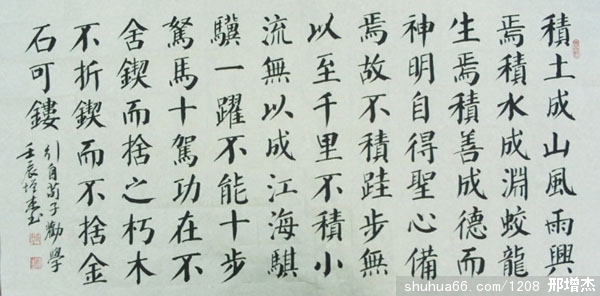 積土成山風雨興
焉積水成淵蛟龍
生焉積善成德而
神明自得聖心備
焉故不積跬步無
以至千里不積小
流無以成江海騏
驥一躍不能十步
駑馬十駕功在不
舍鍥而捨之朽木
不折鍥而不捨金
石可鏤
引自荀子勸學
壬辰增杰书
shuhua66.com/1208 邢增杰